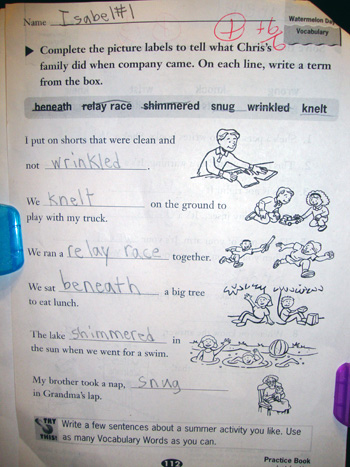 Name Isabel #1
+6
6
Watermelon Day
Vocabulary
Complete the picture labels to tell what Chris's
family did when company came. On each line, write a term
from the box.
beneath relay race shimmered snug wrinkled knelt
I put on shorts that were clean and
not wrinkled.
We knelt on the ground to
play with my truck.
We ran a relay race together.
We sat beneath a big tree
to eat lunch.
The lake shimmered in
the sun when we went for a swim.
My brother took a nap, snug
in Grandma's lap.
TRY
THIS!
Write a few sentences about a summer activity you like. Use
as many Vocabulary Words as you can.
112
Practice Book